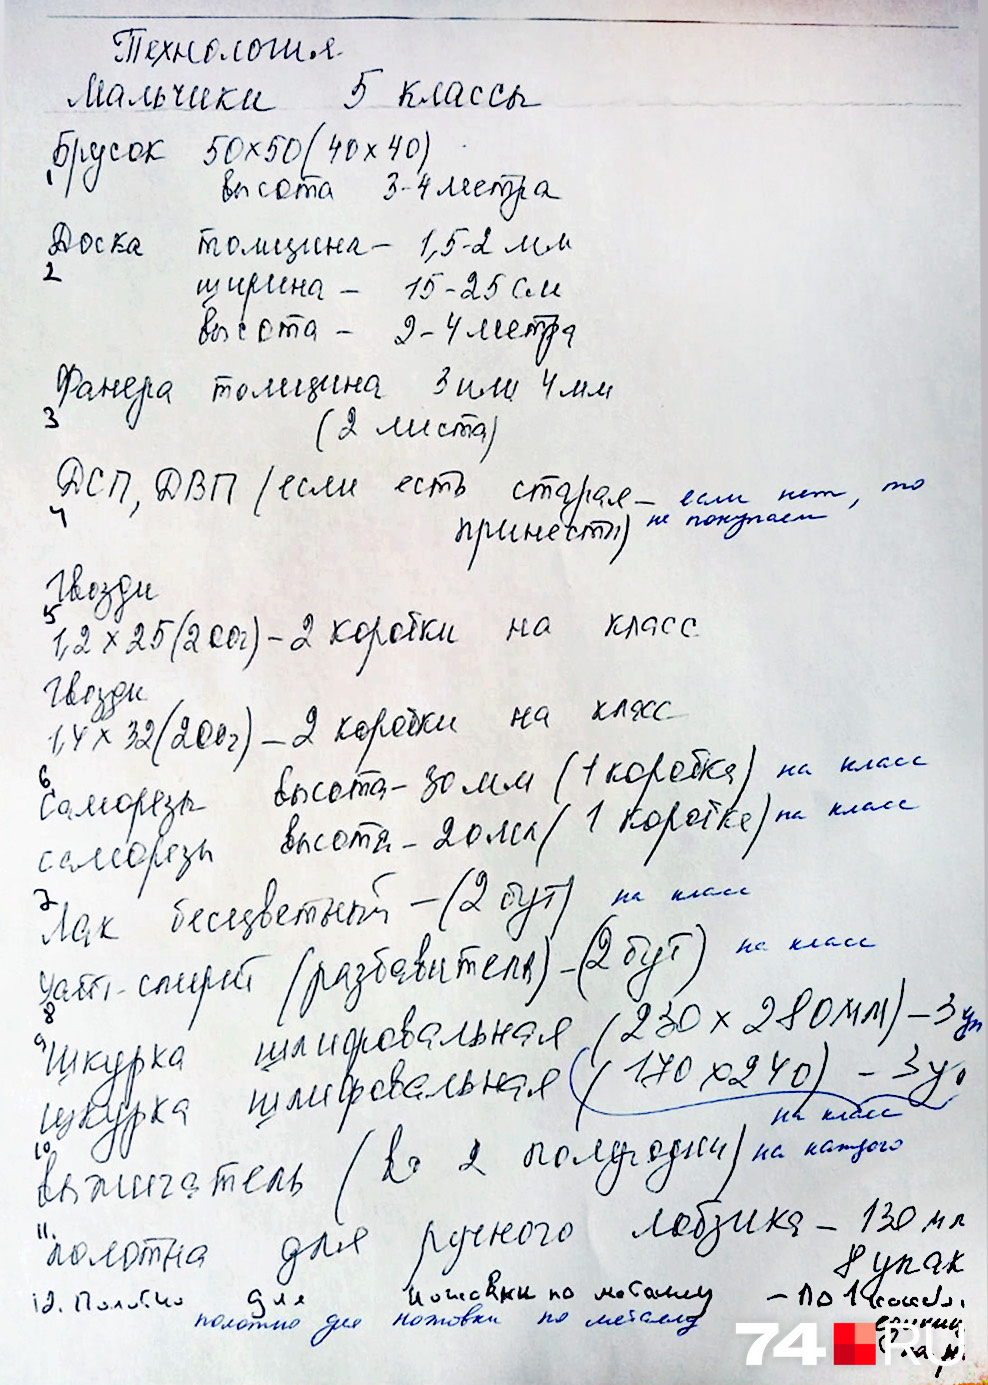 Технология
Мальчики 5 классы
Брусок 50х50(40х40)
1 высота 3-4 метра
Доска толщина - 1,5-2 мм
2 ширина - 15-25 см
высота - 2-4 метра
Фанера толщина 3 или 4 мм
3 (2 листа)
ДСП, ДВП (если есть старая - если нет, то
4 принести) не покупаем
Гвозди
5
1,2 х 25(200г) - 2 коробки на класс
Гвозди
1,4 х 32(200г) - 2 коробки на класс
6
Саморезы высота - 30 мм (1 коробка) на класс
саморезы высота - 20 мм (1 коробка) на класс
7
Лак бесцветный - (2 бут) на класс
Уайт-спирит (разбавитель) - (2 бут) на класс
8
9 Шкурка шлифовальная (230 х 280 мм) - 3 уп
шкурка шлифовальная (170 х 240) - 3 у
на класс
10
выжигатель (во 2 полугодии) на каждого
11.
полотна для ручного лобзика - 130 мм
8 упак
12. Полотно для ножовки по металлу - по 1
полотно для ножовки по металлу
74.RU